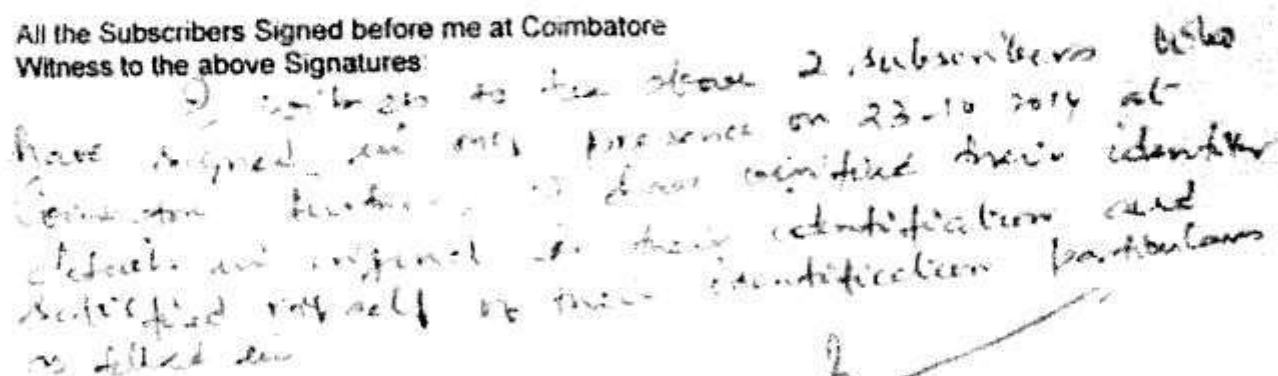 All the Subscribers Signed before me at Coimbatore
Witness to the above Signatures
I witness to the above 2 subscribers who
have signed in my presence on 23-10 2014 at
verified their identity
details in original their identification and
satisfied myself of their identification particulars
as filled in